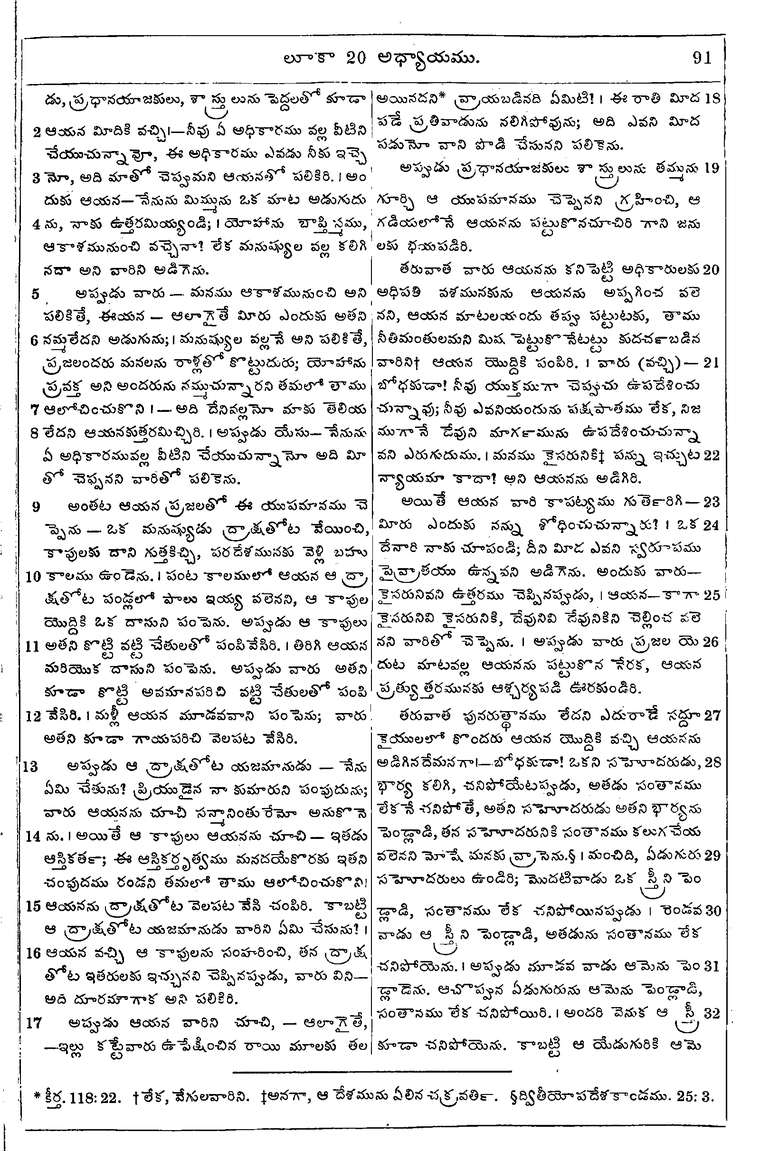 లూకా 20 అధ్యాయము. 91
డు, ప్రధానయాజకులు, శాస్త్రులును పెద్దలతో కూడా
2 ఆయన మీదికి వచ్చి।—నీవు ఏ అధికారము వల్ల వీటిని
చేయుచున్నావో, ఈ అధికారము ఎవడు నీకు ఇచ్చె
3 నో, అది మాతో చెప్పుమని ఆయనతో పలికిరి. । అం
దుకు ఆయన— నేనును మిమ్మును ఒక మాట అడుగుదు
4 ను, నాకు ఉత్తరమియ్యండి; । యోహాను బాప్తిస్మము,
ఆకాశమునుంచి వచ్చెనా? లేక మనుష్యుల వల్ల కలిగి
నదా అని వారిని అడిగెను.
5 అప్పుడు వారు — మనము ఆకాశమునుంచి అని
పలికితే, ఈయన — ఆలాగైతే మీరు ఎందుకు అతని
6 నమ్మలేదని అడుగును; । మనుష్యుల వల్లనే అని పలికితే,
ప్రజలందరు మనలను రాళ్లతో కొట్టుదురు; యోహాను
ప్రవక్త అని అందరును నమ్ముచున్నారని తమలో తాము
7 ఆలోచించుకొని ।— అది దేనివల్లనో మాకు తెలియ
8 లేదని ఆయనకుత్తరమిచ్చిరి. । అప్పుడు యేసు— నేనును
ఏ అధికారమువల్ల వీటిని చేయుచున్నానో అది మీ
తో చెప్పనని వారితో పలికెను.
9 అంతట ఆయన ప్రజలతో ఈ యుపమానము చె
ప్పెను — ఒక మనుష్యుడు ద్రాక్షతోట వేయించి,
కాపులకు దాని గుత్తకిచ్చి, పరదేశమునకు వెళ్లి బహు
10 కాలము ఉండెను. । పంట కాలములో ఆయన ఆ ద్రా
క్షతోట పండ్లలో పాలు ఇయ్య వలెనని, ఆ కాపుల
యొద్దికి ఒక దాసుని పంపెను. అప్పుడు ఆ కాపులు
11 అతని కొట్టి వట్టి చేతులతో పంపివేసిరి. । తిరిగి ఆయన
మరియొక దాసుని పంపెను. అప్పుడు వారు అతని
కూడా కొట్టి అవమానపరిచి వట్టి చేతులతో పంపి
12 వేసిరి. । మళ్లీ ఆయన మూడవవాని పంపెను; వారు
అతని కూడా గాయపరిచి వెలపట వేసిరి.
13 అప్పుడు ఆ ద్రాక్షతోట యజమానుడు — నేను
ఏమి చేతును? ప్రియుడైన నా కుమారుని పంపుదును;
వారు ఆయనను చూచి సన్మానింతురేమో అనుకొనె
14 ను. । అయితే ఆ కాపులు ఆయనను చూచి — ఇతడు
ఆస్తికర్త; ఈ ఆస్తికర్తృత్వము మనదయేకొరకు ఇతని
చంపుదము రండని తమలో తాము ఆలోచించుకొని।
15 ఆయనను ద్రాక్షతోట వెలపట వేసి చంపిరి. కాబట్టి
ఆ ద్రాక్షతోట యజమానుడు వారిని ఏమి చేసును? ।
16 ఆయన వచ్చి ఆ కాపులను సంహరించి, తన ద్రాక్ష
తోట ఇతరులకు ఇచ్చునని చెప్పినప్పుడు, వారు విని—
అది దూరమాగాక అని పలికిరి.
17 అప్పుడు ఆయన వారిని చూచి, — ఆలాగైతే,
—ఇల్లు కట్టేవారు ఉపేక్షించిన రాయి మూలకు తల
అయినదని* వ్రాయబడినది ఏమిటి? । ఈ రాతి మీద 18
పడే ప్రతివాడును నలిగిపోవును; అది ఎవని మీద
పడునో వాని పొడి చేసునని పలికెను.
అప్పుడు ప్రధానయాజకులు శాస్త్రులును తమ్మును 19
గూర్చి ఆ యుపమానము చెప్పెనని గ్రహించి, ఆ
గడియలోనే ఆయనను పట్టుకొనచూచిరి గాని జను
లకు భయపడిరి.
తరువాత వారు ఆయనను కనిపెట్టి అధికారులకు 20
అధిపతి వశమునకును ఆయనను అప్పగించ వలె
నని, ఆయన మాటలయందు తప్పు పట్టుటకు, తాము
నీతిమంతులమని మిష పెట్టుకొనేటట్టు కుదచర్బడిన
వారిని† ఆయన యొద్దికి పంపిరి. । వారు (వచ్చి)— 21
బోధకుడా! నీవు యుక్తముగా చెప్పుచు ఉపదేశించు
చున్నావు; నీవు ఎవనియందును పక్షపాతము లేక, నిజ
ముగానే దేవుని మార్గమును ఉపదేశించుచున్నా
వని ఎరుగుదుము. । మనము కైసరునికి‡ పన్ను ఇచ్చుట 22
న్యాయమా కాదా? అని ఆయనను అడిగిరి.
అయితే ఆయన వారి కాపట్యము గుర్తెరిగి— 23
మీరు ఎందుకు నన్ను శోధించుచున్నారు? । ఒక 24
దేనారి నాకు చూపండి; దీని మీద ఎవని స్వరూపము
పైవ్రాతయు ఉన్నవని అడిగెను. అందుకు వారు—
కైసరునివని ఉత్తరము చెప్పినప్పుడు, । ఆయన—కాగా 25
కైసరునివి కైసరునికి, దేవునివి దేవునికిని చెల్లించ వలె
నని వారితో చెప్పెను. । అప్పుడు వారు ప్రజల యె 26
దుట మాటవల్ల ఆయనను పట్టుకొన నేరక, ఆయన
ప్రత్యుత్తరమునకు ఆశ్చర్యపడి ఊరకుండిరి.
తరువాత పునరుత్థానము లేదని ఎదురాడే సద్దూ 27
కైయులలో కొందరు ఆయన యొద్దికి వచ్చి ఆయనను
అడిగినదేమనగా।—బోధకుడా! ఒకని సహోదరుడు, 28
భార్య కలిగి, చనిపోయేటప్పుడు, అతడు సంతానము
లేకనే చనిపోతే, అతని సహోదరుడు అతని భార్యను
పెండ్లాడి, తన సహోదరునికి సంతానము కలుగచేయ
వలెనని మోషే మనకు వ్రాసెను.§ । మంచిది, ఏడుగురు 29
సహోదరులు ఉండిరి; మొదటివాడు ఒక స్త్రీని పెం
డ్లాడి, సంతానము లేక చనిపోయినప్పుడు । రెండవ 30
వాడు ఆ స్త్రీని పెండ్లాడి, అతడును సంతానము లేక
చనిపోయెను. । అప్పుడు మూడవ వాడు ఆమెను పెం 31
డ్లాడెను. ఆచొప్పున ఏడుగురును ఆమెను పెండ్లాడి,
సంతానము లేక చనిపోయిరి. । అందరి వెనుక ఆ స్త్రీ 32
కూడా చనిపోయెను. కాబట్టి ఆ యేడుగురికి ఆమె
* కీర్త. 118: 22. † లేక, వేగులవారిని. ‡అనగా, ఆ దేశమును ఏలిన చక్రవర్తి. §ద్వితీయోపదేశకాండము. 25: 3.